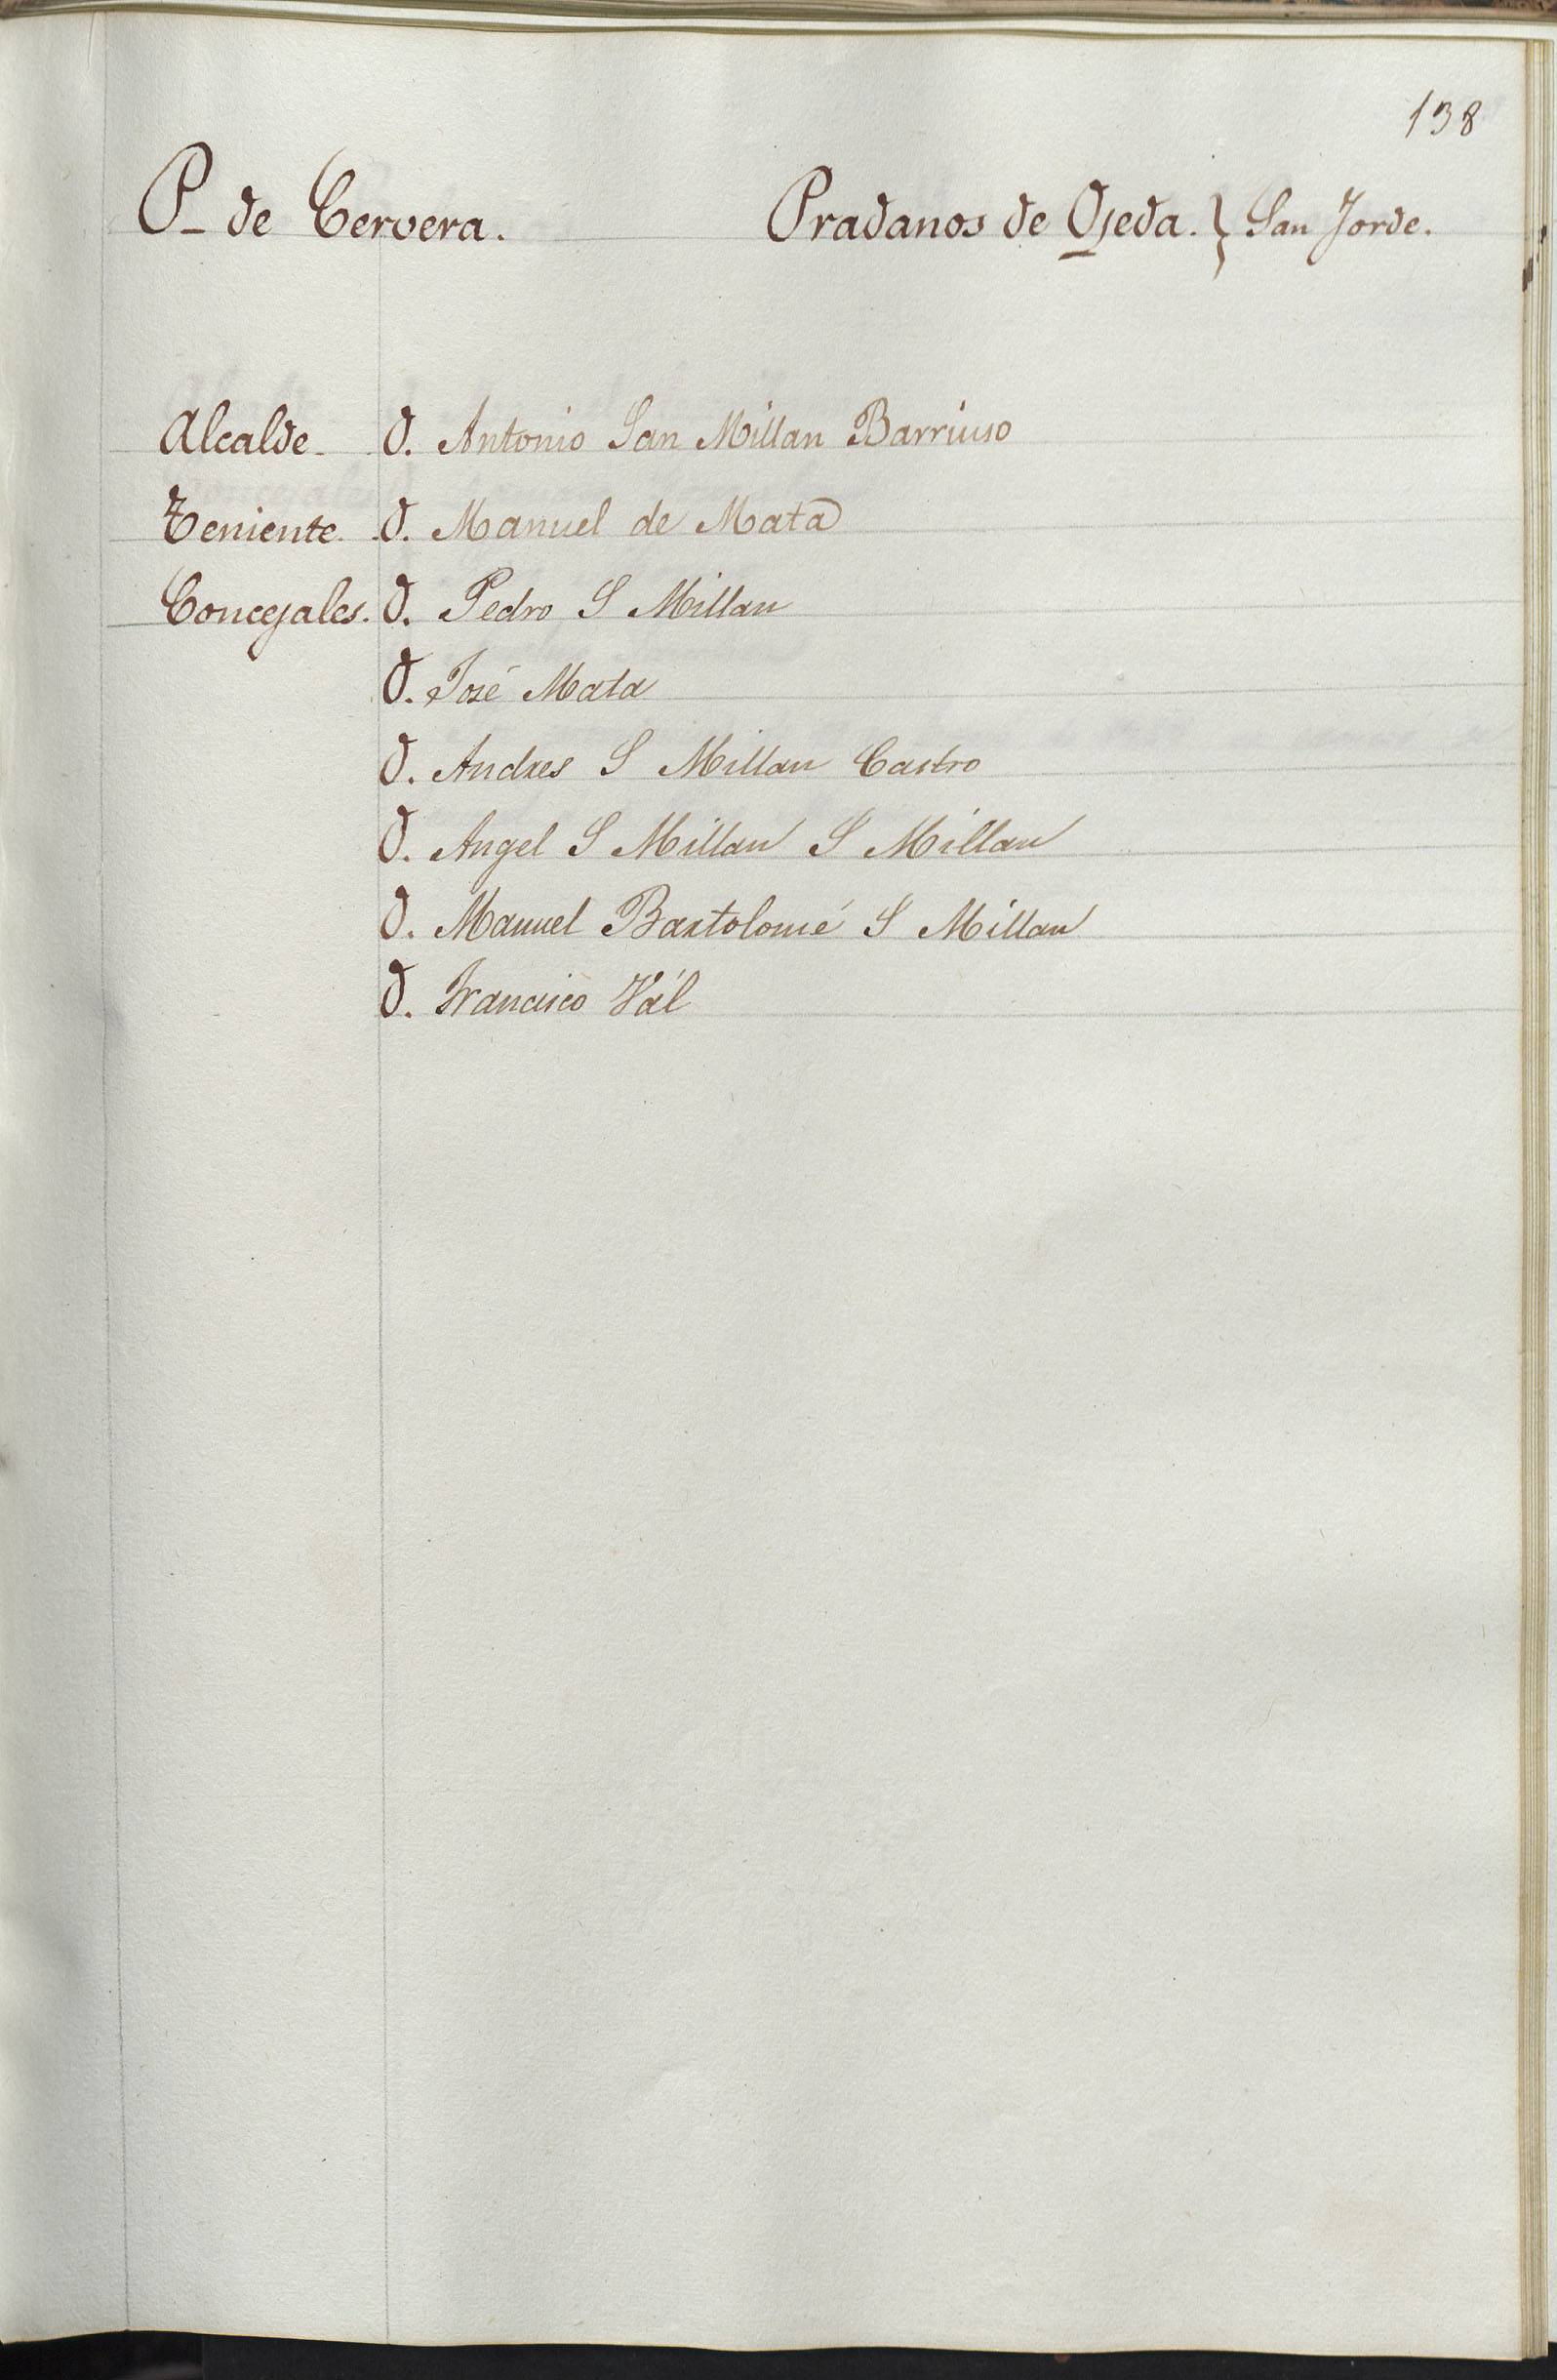 138
P. de Cervera. Pradanos de Ojeda. } San Jorde.
Alcalde. D. Antonio San Millan Barriuso
Teniente. D. Manuel de Mata
Concejales. D. Pedro S Millan
D. José Mata
D. Andres S Millan Castro
D. Angel S Millan S Millan
D. Manuel Bartolomé S Millan
D. Francisco Vál